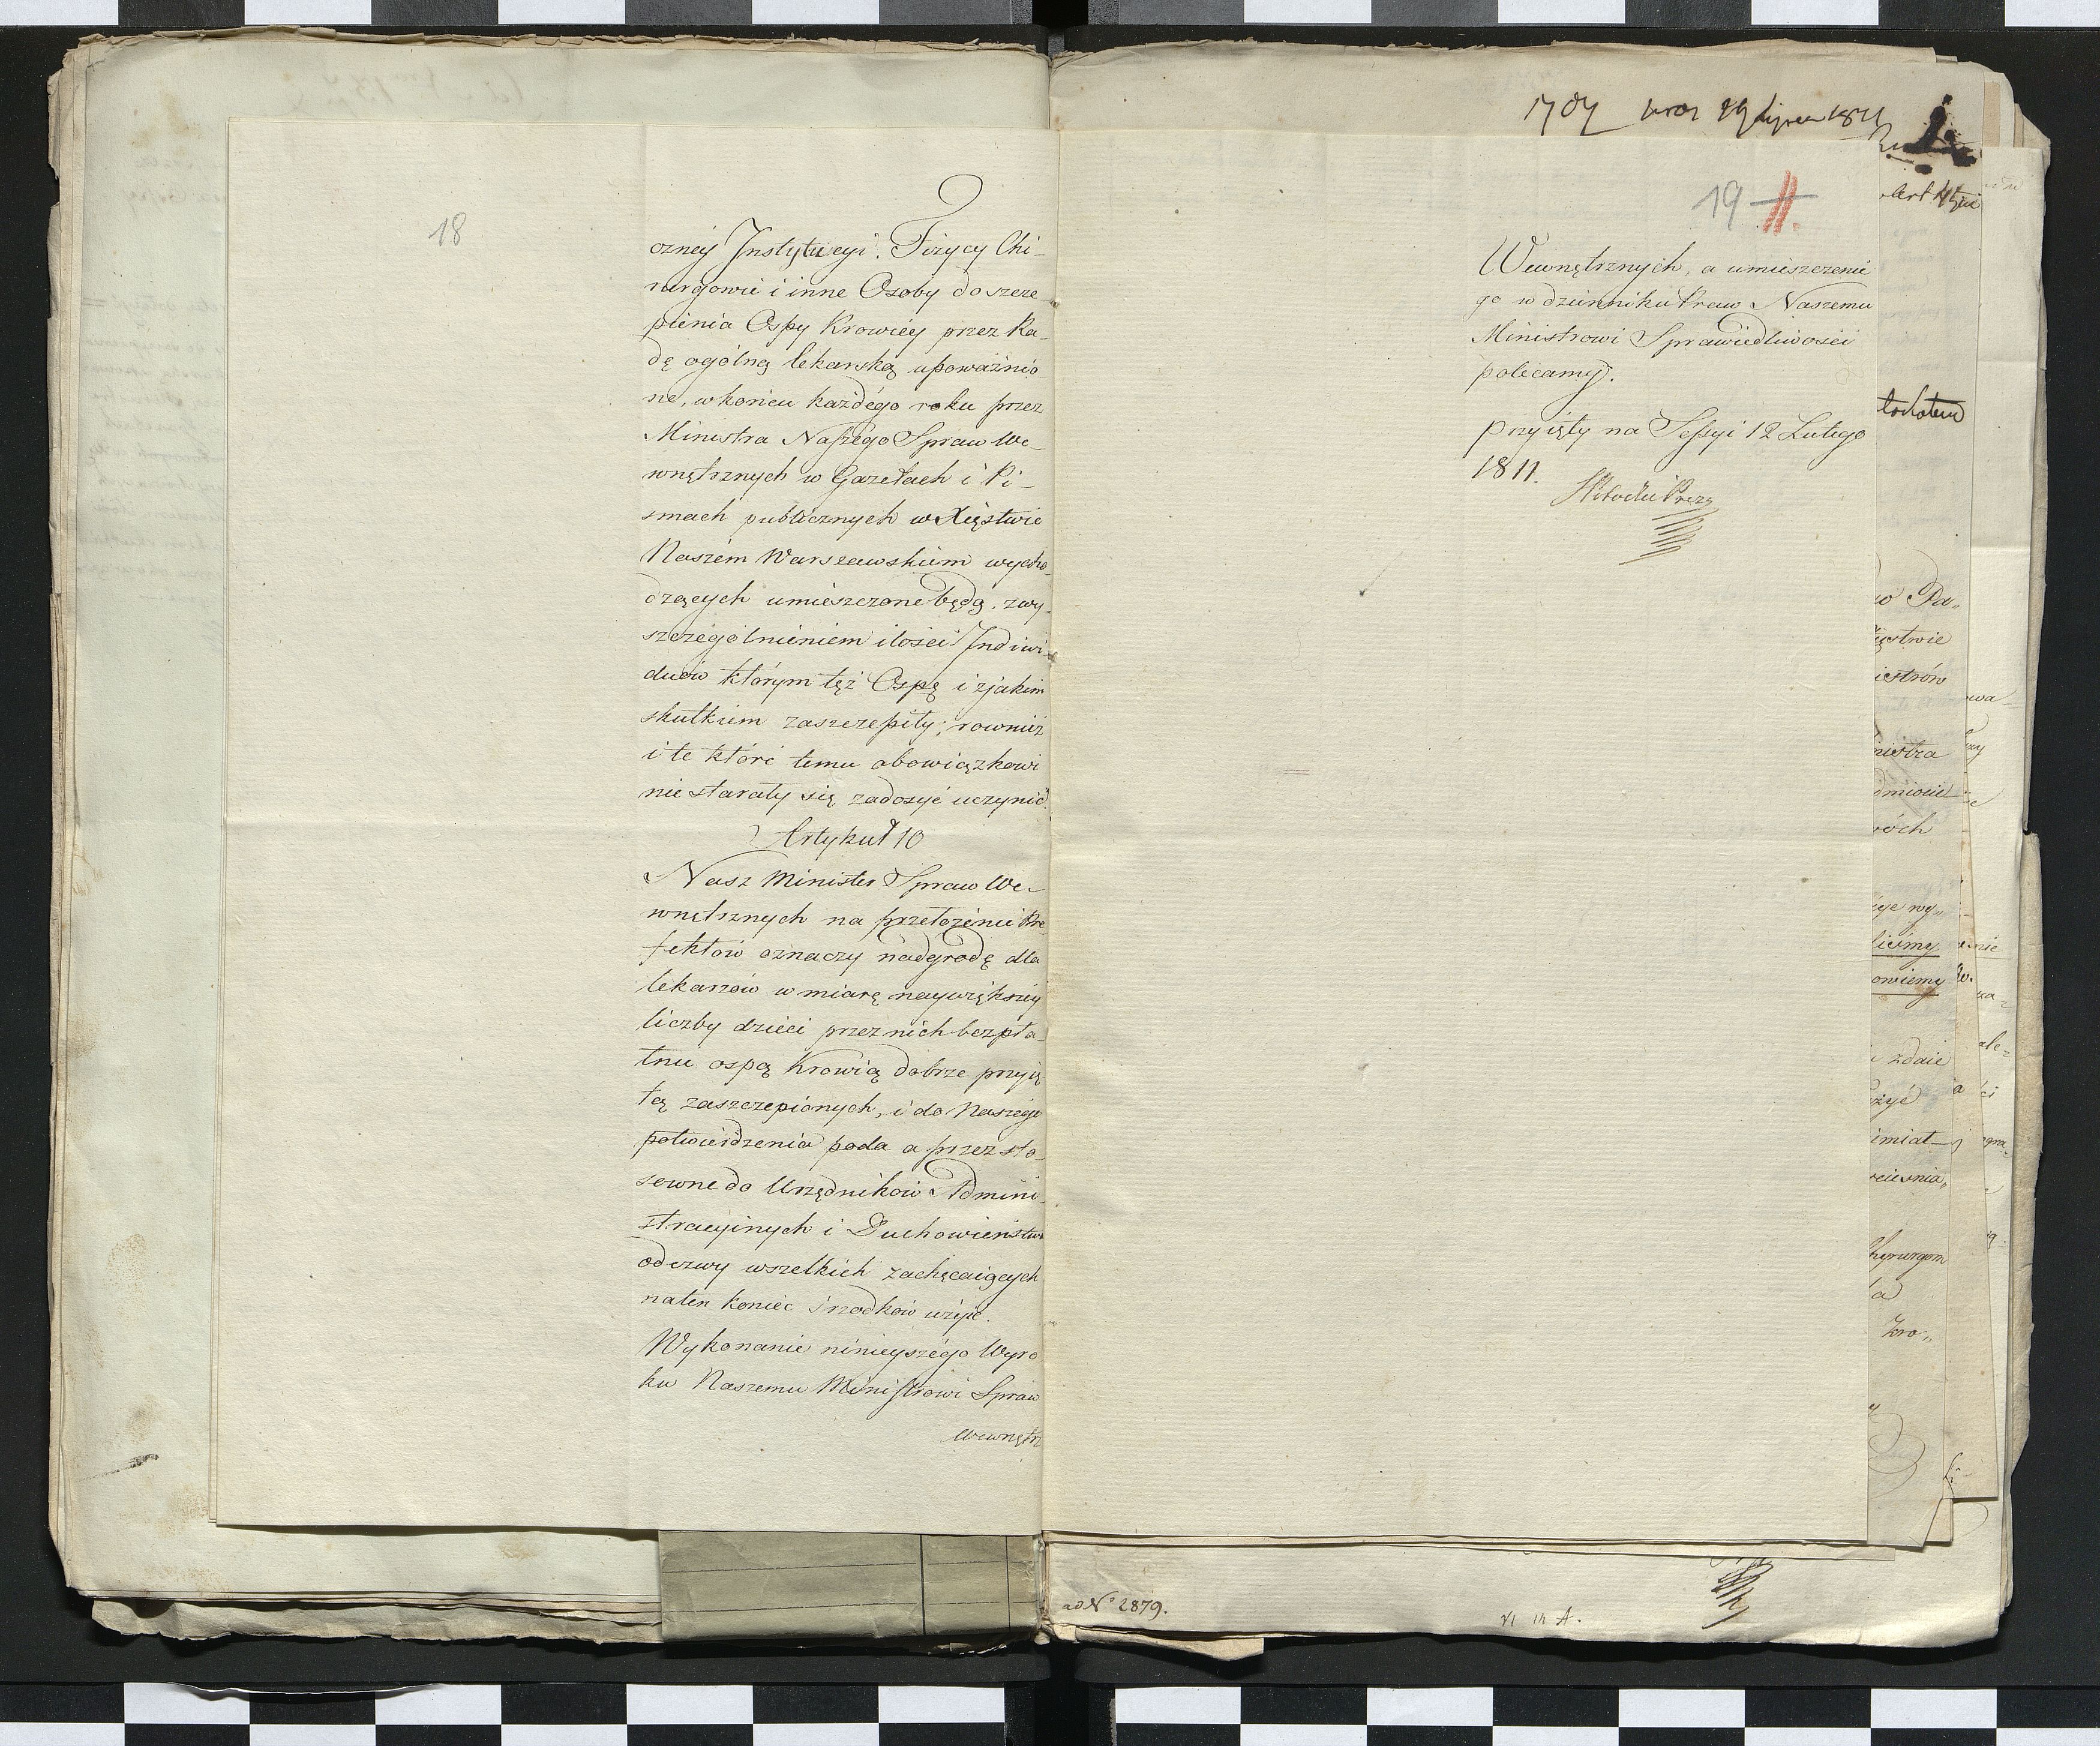 18
czney Instytucyi. Fizycy Chi-
rurgowie i inne Osoby do szcze-
pienia Ospy Krowiéy przez Ra-
dę ogólną lekarską upoważnio-
ne, w końcu każdego roku przez
Ministra Naszego Spraw We-
wnętrznych w Gazetach i Pi-
smach publicznych w Xięstwie
Naszem Warszawskiem wycho-
dzących umieszczone będą, z wy-
szczególnieniem ilości Indiwi-
duów którym też Ospę i z jakim
skutkiem zaszczepiły; rownież
i te które temu obowiązkowi
nie starały się zadosyć uczynić.
Artykuł 10
Nasz Minister Spraw We-
wnętrznych na przełożenie Pre-
fektów oznaczy nadgrodę dla
lekarzów w miarę naywiększey
liczby dzieci przez nich bezpła-
tnie ospą Krowią dobrze przyię-
tą zaszczepionych, i do Naszego
potwierdzenia poda a przez sto-
sowne do Urzędników Admini-
stracyinych i Duchowieństwa
odezwy wszelkich zachęcaiących
na ten koniec środków użyie.
Wykonanie ninieyszego Wyro-
ku Naszemu Ministrowi Spraw
Wewnętrz
1707 29 Lipca 1811
19 11.
Wewnętrznych, a umieszczenie
go w dzienniku Praw Naszemu
Ministrowi Sprawiedliwości
polecamy.
przyięty na Sessyi 12 Lutego
1811.
ad N° 2879.